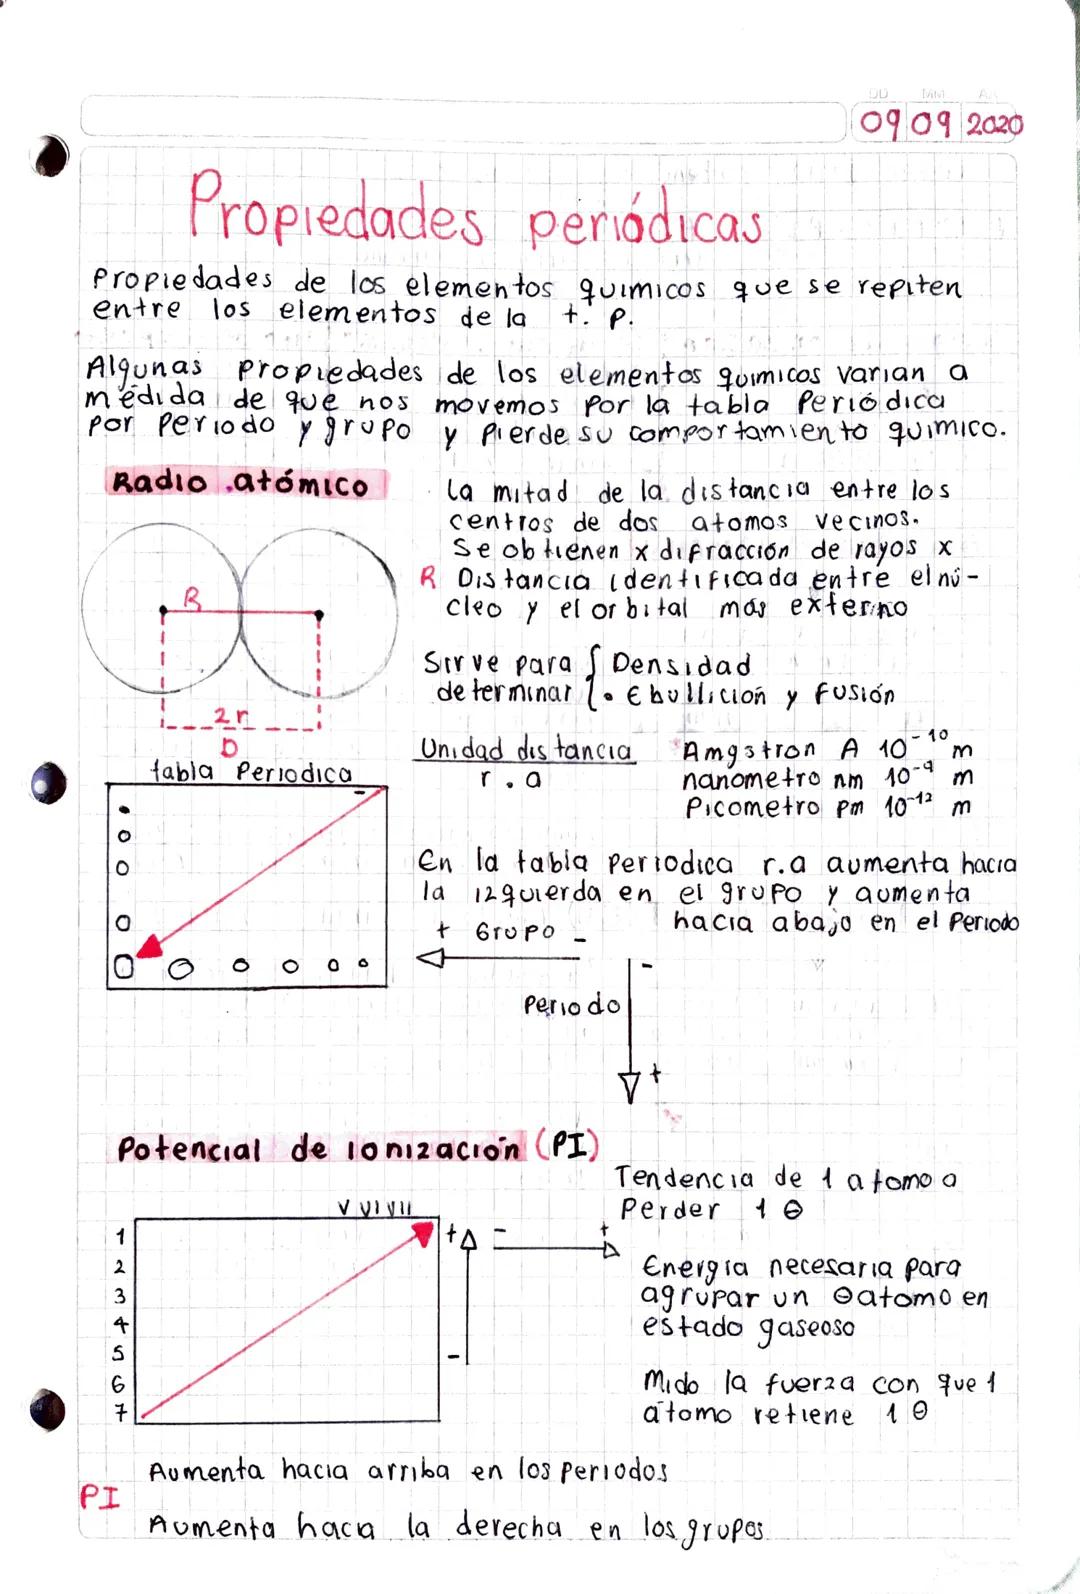 DD MM AA
09 09 2020
Propiedades periódicas
Propiedades de los elementos quimicos que se repiten
entre los elementos de la t. P.
Algunas propiedades de los elementos quimicos varian a
medida de que nos movemos por la tabla Periódica
por Periodo y grupo y Pierde su comportamiento quimico.
Radio atómico
La mitad de la distancia entre los
centros de dos atomos vecinos.
Se obtienen x difracción de rayos x
R Distancia identificada entre el nú-
cleo y el orbital más externo
R
2r
D
Sirve para { Densidad
determinar • Ebullición y fusión
Unidad distancia
r.a
Amgstron A 10⁻¹⁰ m
nanometro nm 10⁻⁹ m
Picometro pm 10⁻¹² m
tabla Periodica
-
En la tabla periodica r.a aumenta hacia
la izquierda en el grupo y aumenta
hacia abajo en el Periodo
+ Grupo -
Periodo
-
+
Potencial de ionización (PI)
Tendencia de 1 atomo a
Perder 1 ⊖
V VI VII
1
2
3
4
5
6
7
+
-
- +
Energia necesaria para
agrupar un ⊖atomo en
estado gaseoso
Mido la fuerza con que 1
átomo retiene 1 ⊖
Aumenta hacia arriba en los periodos
PI
Aumenta hacia la derecha en los grupos